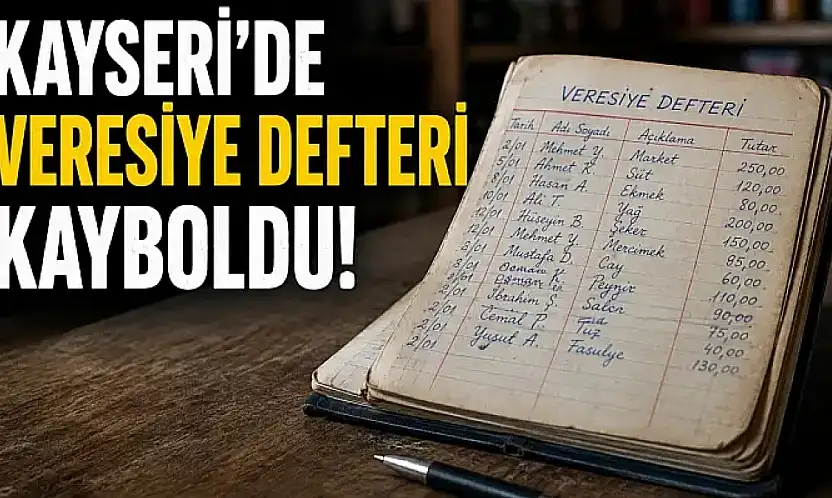 KAYSERİ'DE
VERESİYE DEFTERİ
KAYBOLDU!
VERESİYE DEFTERİ
Tarih Adı Soyadı Açıklama Tutar
2/01 Mehmet Y. Market 250,00
5/01 Ahmet K. Süt 120,00
8/01 Hasan A. Ekmek 80,00
10/01 Ali T. Yağ 200,00
12/01 Hüseyin B. Şeker 150,00
12/01 Mehmet Y. Mercimek 95,00
3/01 Mustafa D. Cay 60,00
Peynir 110,00
2/01 İbrahim Ş. 90,00
2/01 Cemal P. Tuz 75,00
2/01 Yusuf A. Fasulye 40,00
2/01 130,00